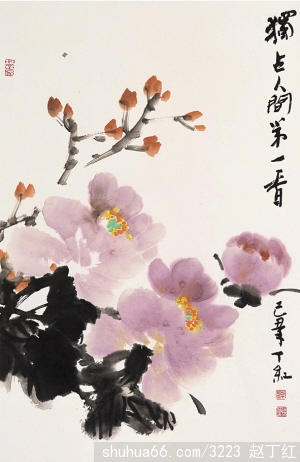 獨占人間第一香
己丑年丁紅
shuhua66.com/3223 赵丁红